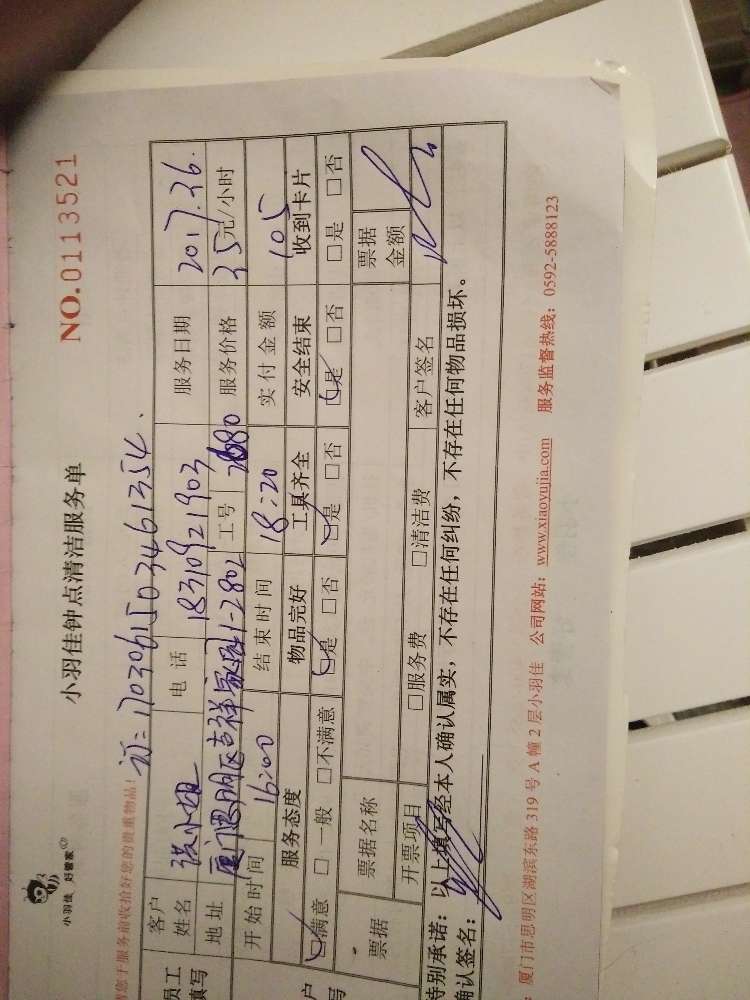 小羽佳 好管家
小羽佳钟点清洁服务单
NO.0113521
请您于服务前收拾好您的贵重物品!
订=1703061503461354.
员工
填写
客户
姓名
张小姐
电话
18310921903
服务日期
2017.3.6.
地址
厦门思明区吉祥家园1-2802
工号
服务价格
35元/小时
开始时间
16:00
结束时间
18:20
实付金额
105
服务态度
物品完好
工具齐全
安全结束
收到卡片
☑满意 □一般 □不满意
☑是 □否
☑是 □否
☑是 □否
□是 □否
票据
票据名称
票据
金额
开票项目
□服务费 □清洁费
客户签名
特别承诺:以上填写经本人确认属实,不存在任何纠纷,不存在任何物品损坏。
确认签名:
:厦门市思明区湖滨东路319号A幢2层小羽佳 公司网站:www.xiaoyujia.com 服务监督热线:0592-5888123